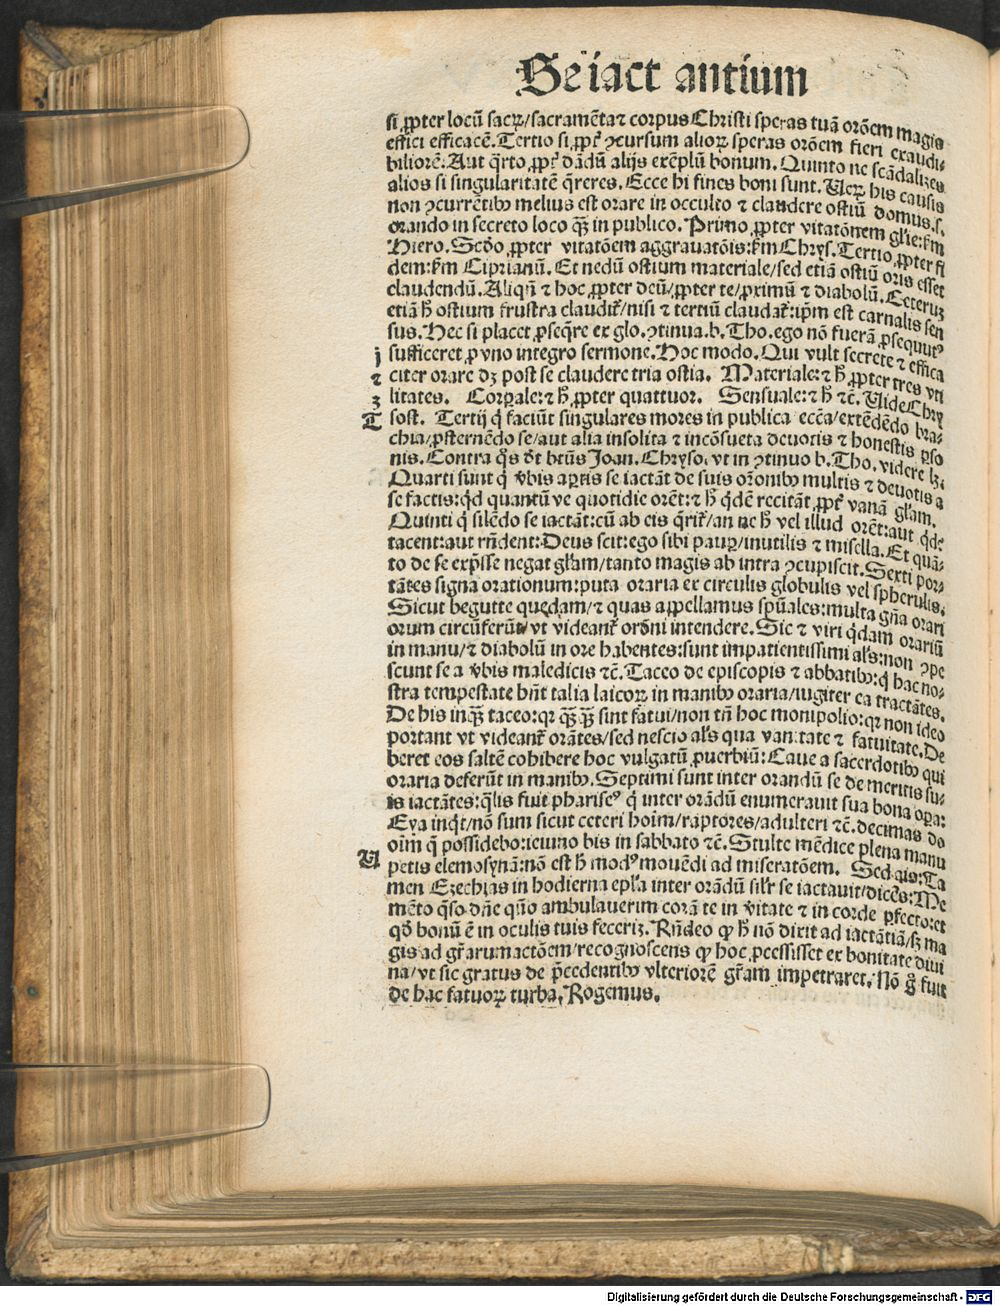 Se iact antium
si ꝓpter locū sacrꝫ/sacramēta⁊ corpus Christi speras tuā orōem magis
effici efficacē. Tertio si ꝓpt̄ ꝯcursum alioꝝ speras orōem fieri exaudi-
biliorē. Aut q̄rto ꝓpt̄ dādū alijs exēplū bonum. Quinto ne scādalizes
alios si singularitatē q̄reres. Ecce hi fines boni sunt. Ueꝝ his causis
non ꝯcurrētibꝰ melius est orare in occulto ⁊ claudere ostiū domus.s.
orando in secreto loco qꝫ̄ in publico. Primo ꝓpter vitatōnem gl̄ie:ẜm
Hiero. Scd̄o ꝓpter vitatōem aggrauatōis:ẜm Chryſ. Tertio ꝓpter fi
dem:ẜm Ciprianū. Et nedū ostium materiale/sed etiā ostiū oris esset
claudendū. Aliqn̄ ⁊ hoc ꝓpter deū/ꝓpter te/ꝓximū ⁊ diabolū. Ceteruꝫ
etiā h̄ ostium frustra claudit̄/nisi ⁊ tertiū claudat̄:ip̄m est carnalis sen
sus. Hec si placet ꝓseq̄re ex glo. ꝯtinua.b. Tho. ego nō fuerā ꝓsequutꝰ
j sufficeret ꝓ vno integro sermone. Hoc modo. Qui vult secrete ⁊ effica
⁊ citer orare dꝫ post se claudere tria ostia. Materiale:⁊ h̄ ꝓpter tres vti
3 litates. Corꝑale:⁊ h̄ ꝓpter quattuor. Sensuale:⁊ h̄ ⁊c̄. Uide Chry
T sost. Tertij q̄ faciūt singulares mores in publica ecc̄a/extēdēdo bra-
chia/ꝓsternēdo se/aut alia insolita ⁊ incōsueta deuotis ⁊ honestis ꝑso
nis. Contra q̄s d̄t bt̄us Joan. Chryso. vt in ꝯtinuo b. Tho. videre lꝫ.
Quarti sunt q̄ v̄bis aꝑtis se iactāt de suis or̄onibꝰ multis ⁊ deuotis a
se factis:qd̄ quantū ve quotidie orēt:⁊ h̄ qd̄ē recitāt ꝓpt̄ vanā gl̄iam.
Quinti q̄ silēdo se iactāt:cū ab eis q̄rit̄/an ne h̄ vel illud orēt:aut qd̄ē
tacent:aut rn̄dent:Deus scit:ego sibi pauꝑ/inutilis ⁊ misella. Et quā-
to de se exp̄sse negat gl̄iam/tanto magis ab intra ꝯcupiscit. Sexti por-
tātes signa orationum:puta oraria ex circulis globulis vel spherulis.
Sicut begutte quędam/⁊ quas appellamus sp̄uales:multa gn̄a orari
orum circūferūt/vt videant̄ orōni intendere. Sic ⁊ viri q̄dam orariū
in manu/⁊ diabolū in ore habentes:sunt impatientissimi al̄s:non ꝯpe
scunt se a v̄bis maledicis ⁊c̄. Taceo de episcopis ⁊ abbatibꝰ:q̄ hac no-
stra tempestate hn̄t talia laicoꝝ in manibꝰ oraria/iugiter ea tractātes.
De his inqꝫ̄ taceo:qꝛ qꝫ̄qꝫ̄ sint fatui/non tn̄ hoc monipolio:qꝛ non ideo
portant vt videant̄ orātes/sed nescio al̄s qua vanitate ⁊ fatuitate. De
beret eos saltē cohibere hoc vulgatū ꝓuerbiū: Caue a sacerdotibꝰ qui
oraria deferūt in manibꝰ. Septimi sunt inter orandū se de meritis su-
is iactātes:q̄lis fuit phariseꝰ q̄ inter orādū enumerauit sua bona oꝑa:
Eya inq̄t/nō sum sicut ceteri hoim̄/raptores/adulteri ⁊c̄. decimas do
oim̄ q̄ possideo:ieiuno bis in sabbato ⁊c̄. Stulte mēdice plena manu
U petis elemosynā:nō est h̄ modꝰ mouēdi ad miseratōem. Sed ais:Ta
men Ezechias in hodierna ep̄la inter orādū sil̄r se iactauit/dicēs:Me
mēto q̄so dn̄e qūo ambulauerim corā te in v̄itate ⁊ in corde ꝑfecto:et
qd̄ bonū ē in oculis tuis feceriꝫ. Rn̄deo ꝙ h̄ nō dixit ad iactātiā/sꝫ ma
gis ad gr̄arum actōem/recognoscens ꝙ hoc ꝓcessisset ex bonitate diui
na/vt sic gratus de p̄cedentibꝰ vlteriorē gr̄am impetraret. Nō g̊ fuit
de hac fatuoꝝ turba. Rogemus.
Digitalisierung gefördert durch die Deutsche Forschungsgemeinschaft - DFG